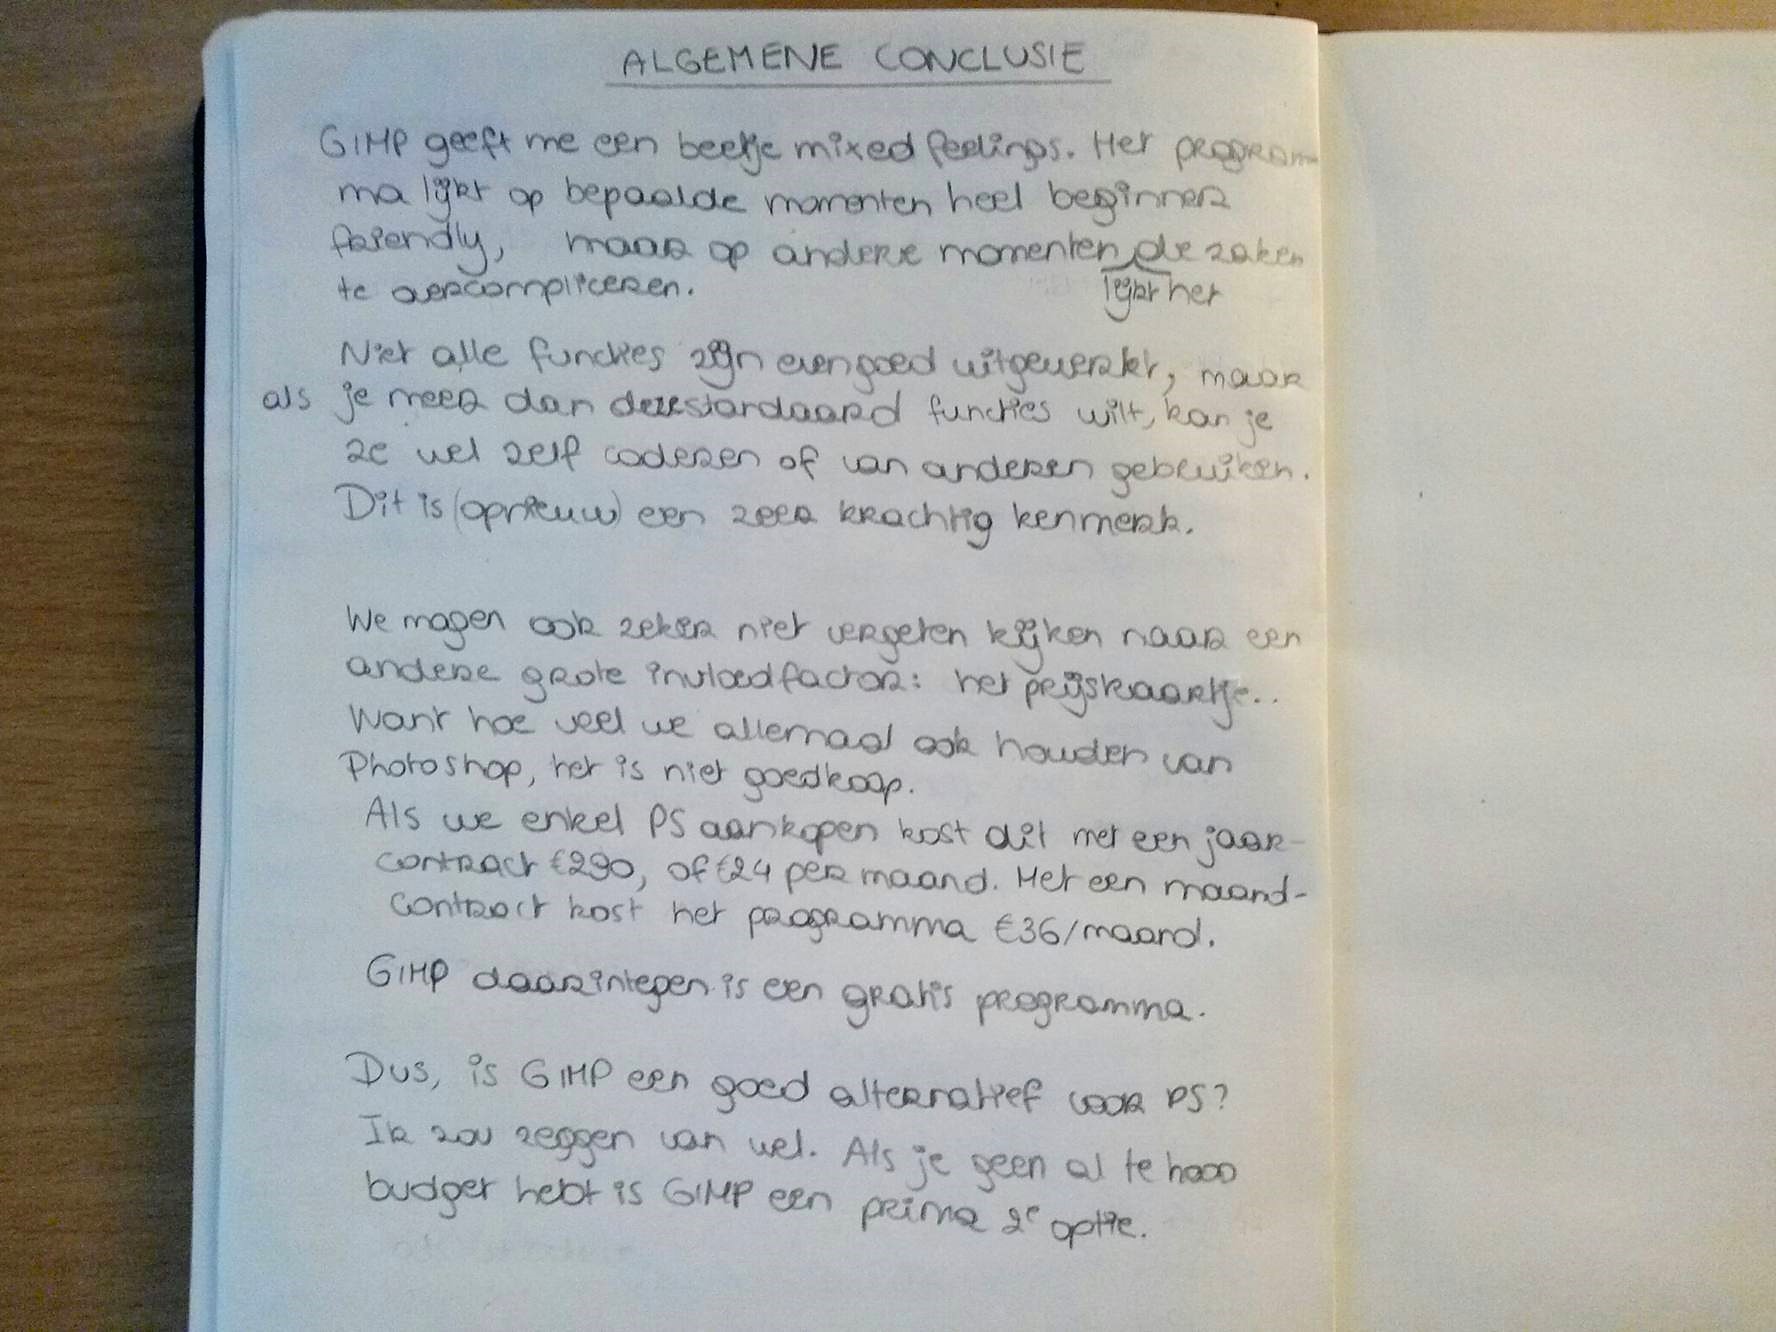 ALGEMENE CONCLUSIE
GIMP geeft me een beetje mixed feelings. Het program-
ma lijkt op bepaalde momenten heel beginner
friendly, maar op andere momenten de zaken
te overcompliceren. lijkt het
Niet alle functies zijn evengoed uitgewerkt, maar
als je meer dan deze standaard functies wilt, kan je
ze wel zelf coderen of van anderen gebruiken.
Dit is (opnieuw) een zeer krachtig kenmerk.
We mogen ook zeker niet vergeten kijken naar een
andere grote invloedfactor: het prijskaartje..
Want hoe veel we allemaal ook houden van
Photoshop, het is niet goedkoop.
Als we enkel PS aankopen kost dit met een jaar-
contract €290, of €24 per maand. Met een maand-
contract kost het programma €36/maand.
GIMP daarintegen is een gratis programma.
Dus, is GIMP een goed alternatief voor PS?
Ik zou zeggen van wel. Als je geen al te hoog
budget hebt is GIMP een prima 2e optie.